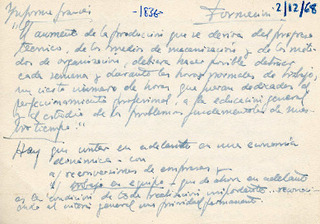 Informe francés -1836- Formación 2/12/68
"El aumento de la producción que se deriva del progreso
técnico, de los medios de mecanización y de los méto-
dos de organización, debiera hacer posible deducir
cada semana y durante las horas normales de trabajo,
un cierto número de horas que fueran dedicadas al
perfeccionamiento profesional, a la educación general
y al estudio de los problemas fundamentales de nues-
tro tiempo."
Hay que entrar en adelante en una economía
dinámica - con
a) reconversiones de empresas y
b) trabajo en equipo - que de ahora en adelante
es la condición de toda realización importante
cido el interés general una prioridad permanente.